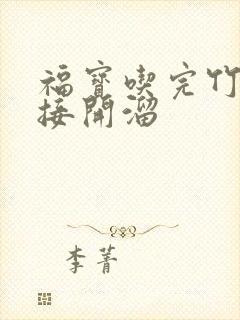 福寶喫完竹
接開溜
李菁